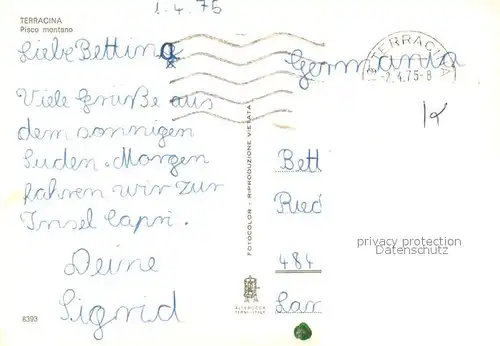 1.4.75
TERRACINA
Pisco montano
Liebe Bettina
Viele Grüße aus
dem sonnigen
Süden. Morgen
fahren wir zur
Insel Capri.
Deine
Sigrid
8393
FOTOCOLOR - RIPRODUZIONE VIETATA
TERRACINA
-2.4.75-8
Germania
Bett
Ried
484
Lan
privacy protection
Datenschutz